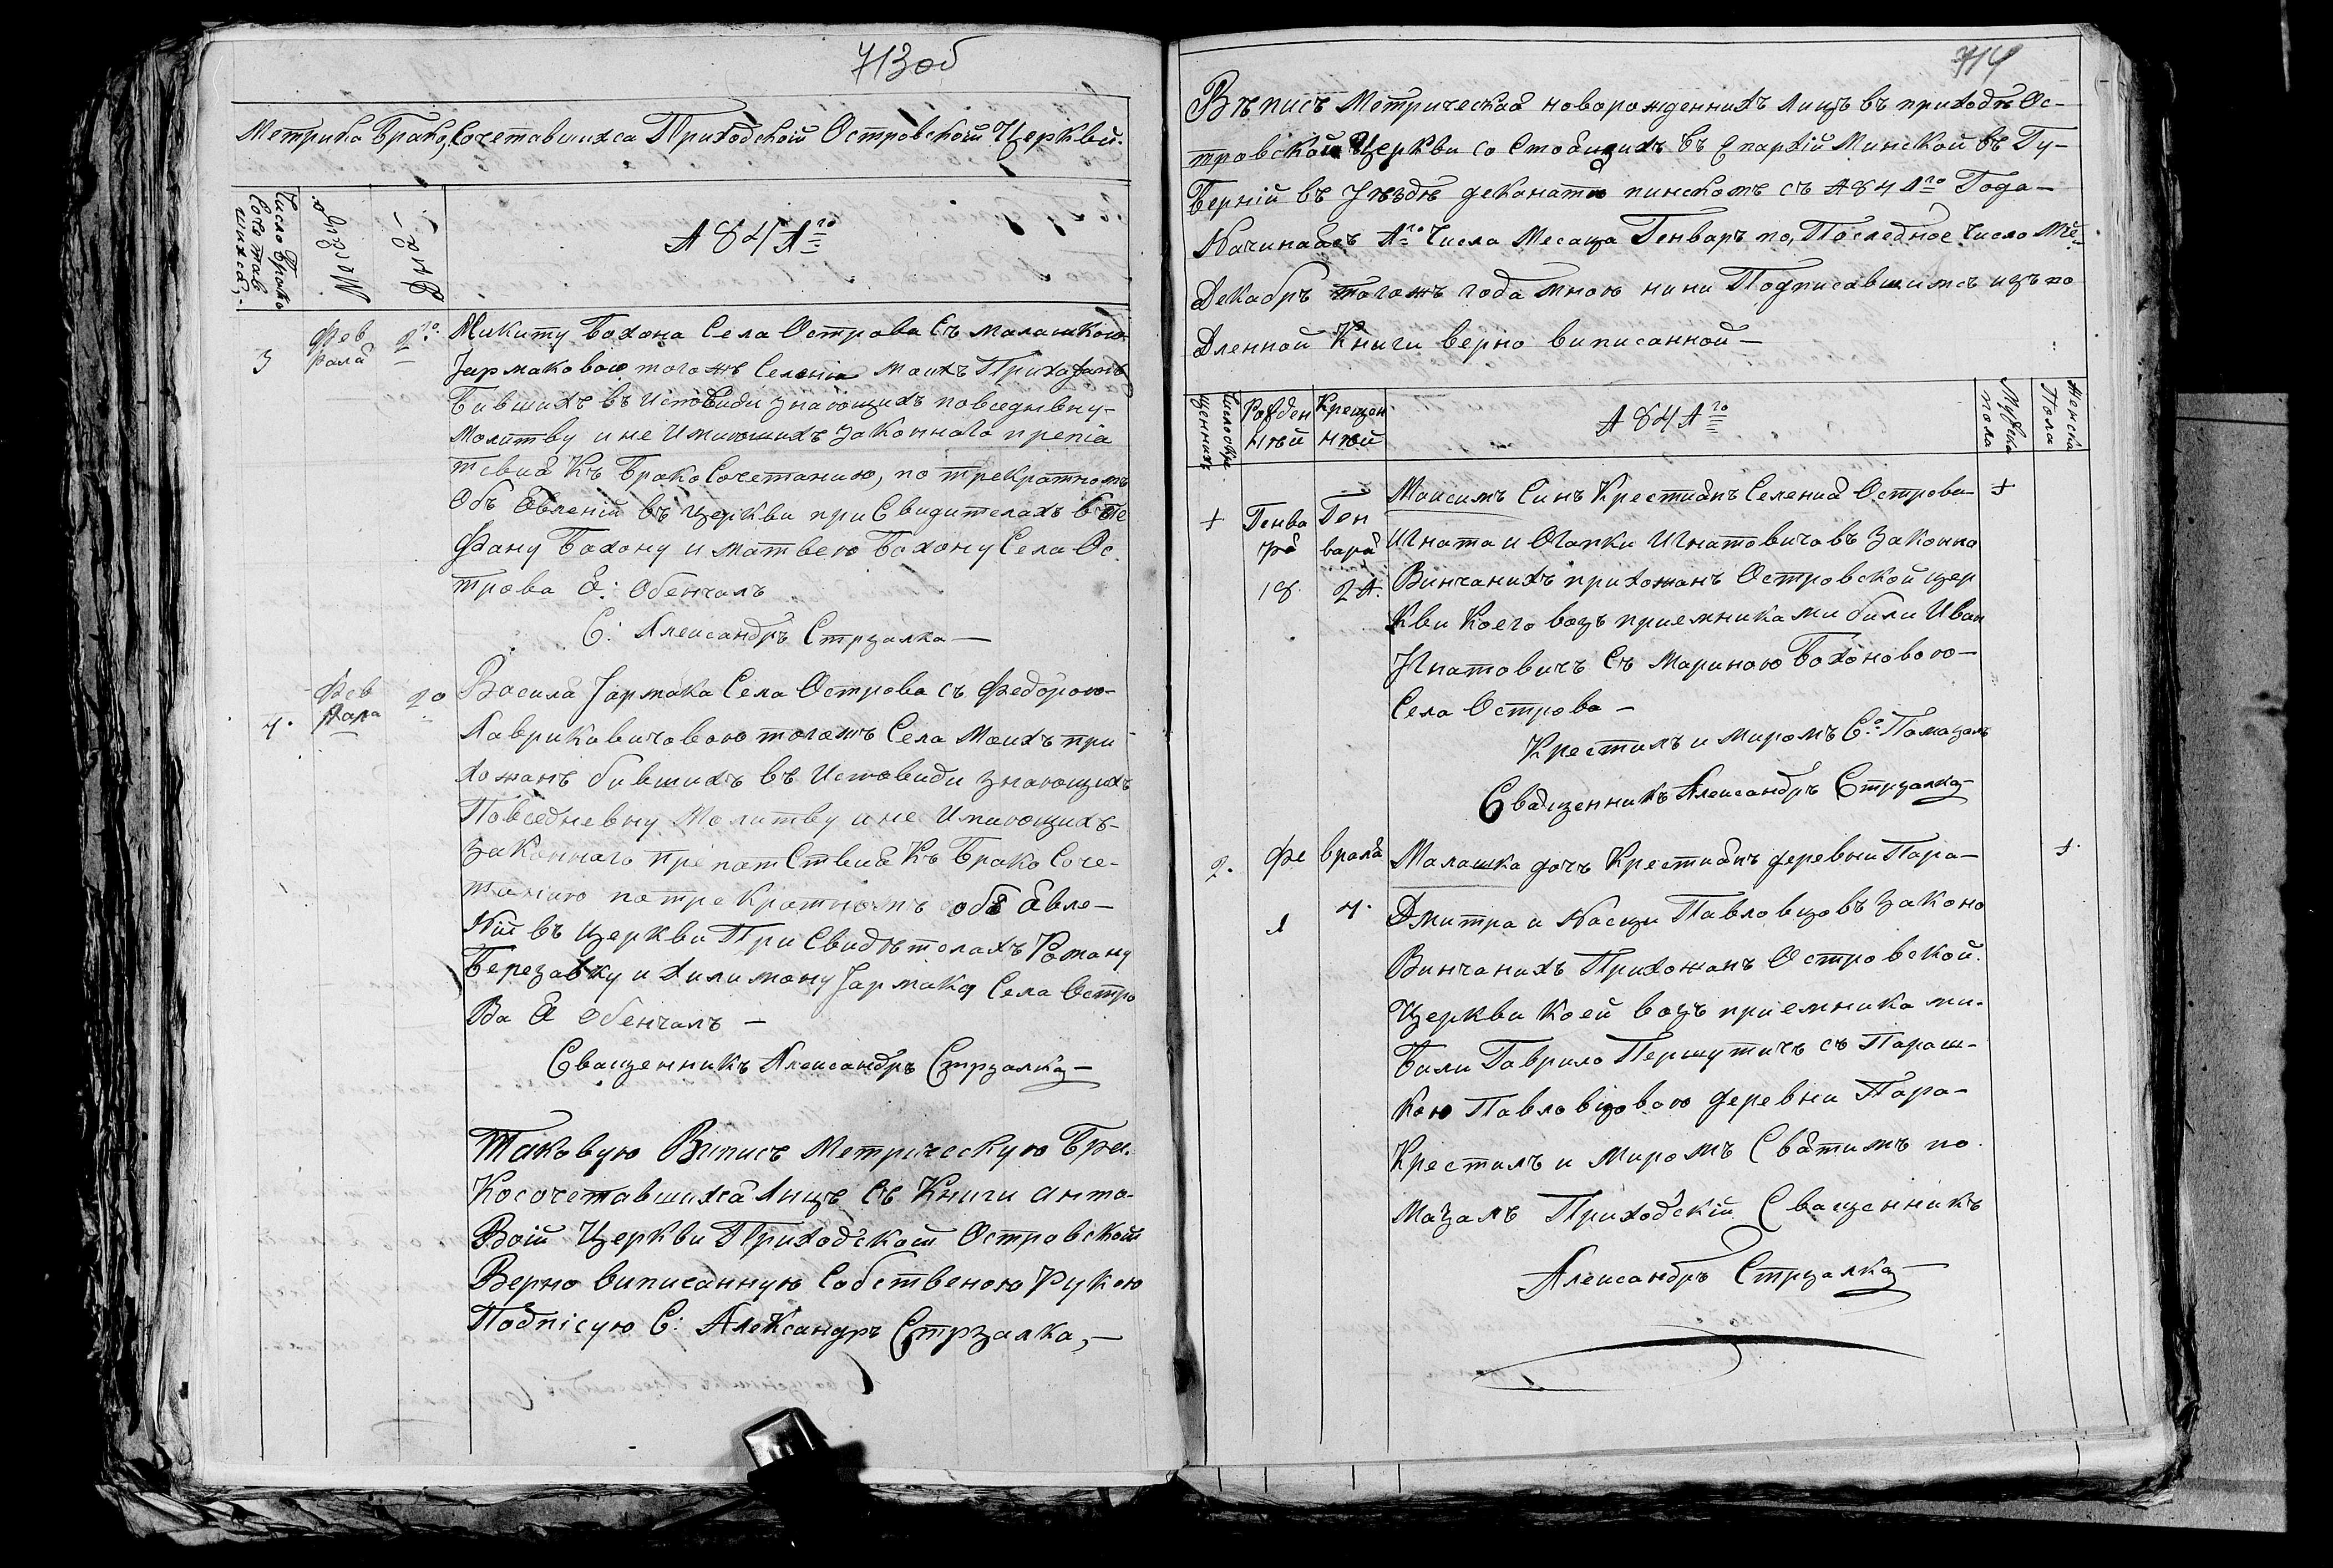 713 об
Метрика Брако, Сочетавшихса Приходской Островской Церквы.
Число Брако
Сочетав
шихся,
Месяц
Дня
1841го
3
Фев
рала
2го.
Микиту Бохона Села Острова Съ Малашкою
Јармаковою тогожъ Селенія Моихъ Прихожанъ
Бившихъ въ Исповиди знающихъ повседневну-
Молитву и не Имиющихъ Законного препія
тствия Къ БракоСочетанию, по трекратномъ
Объ Евленій въ Церкви при Свидителахъ Сте
фану Бохону и Матвею Бохону Села Ос
трова Я: Обенчалъ
С: Александръ Стрзалка—
4.
Фев
рала
20
Василя Јармака Села Острова съ Федорою-
Лавриковичовою тогожъ Села Моихъ при
хожанъ бившихъ въ Исповиди знающихъ
Повседневну Молитву и не Имиющихъ-
Законнаго препятСтвия Къ Брако Соче-
танию по трекратномъ объ Явле-
Ній въ Церкви При Свидѣтелахъ Роману
Березавку и Хилимону Јармака Села Остро
Ва Я Обенчалъ —
Сващенникъ Александръ Стрзалка—
Таковую Випись Метрическую Бра.
Косочетавшихся Лицъ Съ Книги анто-
Вой Церкви Приходской Островской
Верно виписанную Собственою Рукою
Подпісую С: Александръ Стрзалка,—
714
Вѣпись Метрическая новорожденнихъ лицъ въ приходѣ Ос-
тровской Церкви со Стоящихъ въ Епархій Минской въ Гу-
Берній въ Јездѣ деканатѣ пинскомъ съ 1841го Года—
Начинаясь 1го Числа Месаца Генваръ по, Последное Число Мѣ-
Декабръ тогожъ года мною ниже Подписавшимсь изъ по
Дленной Книги верно виписанной—
Число Кре
щенникъ
Рожден
Ньій
Крещен
Ньій
1841го
Мужеска
пола
Женска
Пола
1
Генва
ря
18.
Ген
варя
21.
Максимъ Синъ Крестиянъ Селения Острова—
Игната и Огапки Игнатовичовъ Законно
Винчанихъ прихожанъ Островской цер
Кви Коего воцъ приемниками били Иван
Јгнатовичъ Съ Мариною Бохоновою—
Села Острова—
Крестилъ и Миромъ Со: Помазалъ
Сващенникъ Александръ Стрзалка
1
2.
Фе
враля
1
4.
Малашка дочъ Крестиянъ деревни Пара—
Дмитра и Насци Павловцовъ Законо
Винчанихъ Прихожанъ Островской.
Церкви Коей воцъ приемника ми.
Били Гаврило Першутичъ съ Параш-
Кою Павловцовою деревни Пара—
Крестилъ и Миромъ Святимъ по
Мазалъ Приходскій Сващенникъ
Александръ Стрзалка—
1.